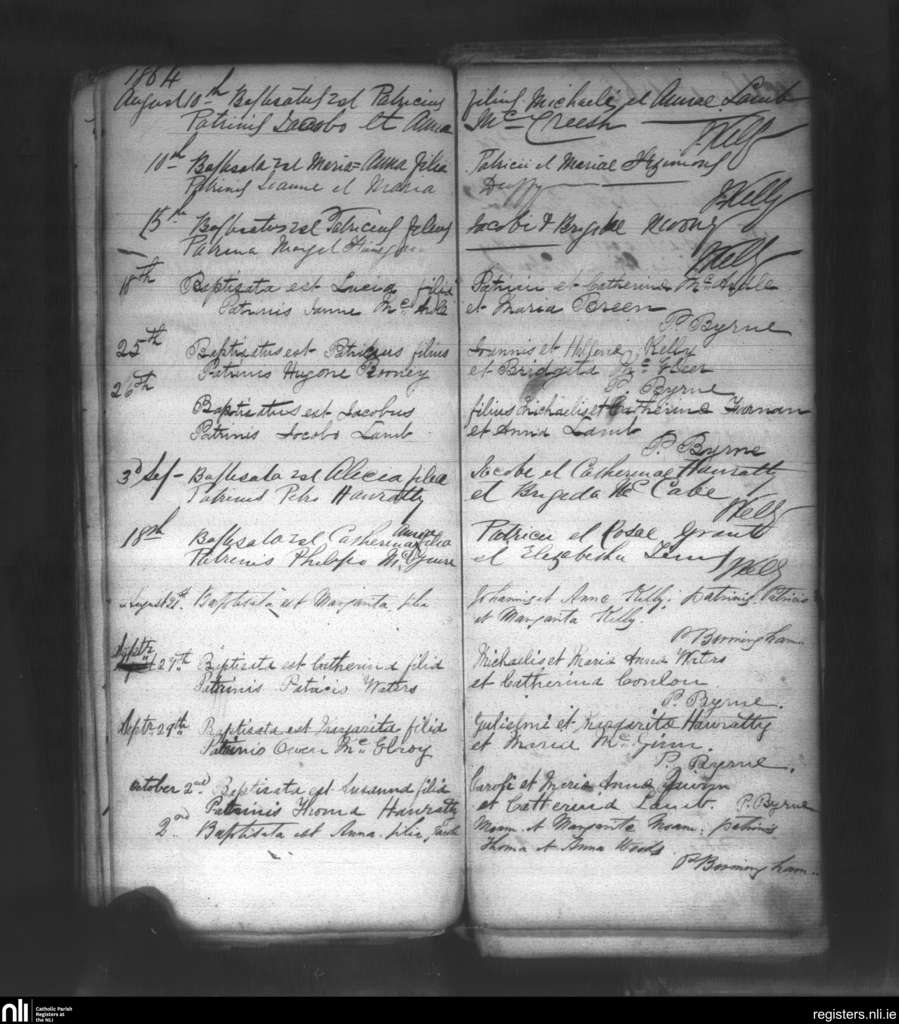 1864
August 10th Baptisatus est Patricius filius Michaeli et Annae Lamb
Patrinis Jacobo et Anna McCreesh
Kelly
10th Baptisata est Maria Anna filia Patricii et Mariae
Patrinis Joanne et Maria Duffy
Kelly
15th Baptisatus est Patricius filius Jacobi & Brigidae
Patrina Margt
Kelly
18th Baptizata est Lucia filia Patricii et Catherina McArdle
Patrinis Janne McArdle et Maria Breen
P. Byrne
25th Baptisatus est Patricius filius Joannis et Kelly
Patrinis Hugone Rooney et Bridgida McGeer
P. Byrne
26th
Baptisatus est Jacobus filius Michaelis et Catherina
Patrinis Jocobo Lamb et Anna Lamb
P. Byrne
3d Sep - Baptisata est Alecia filia Jacobi et Catherinae Hanratty
Patrinis Petro Hanratty et Brigida McCabe
Kelly
18th Baptisata est Catherina Anna filia Patricii et Rosae Grant
Patrinis Philipo McGuire et Elizabetha
Kelly
August 21st Baptisata est Margarita filia Johannis et Anna Kelly; patrinis Patricio
et Margarita Kelly.
P Bormingham
Septr 27th Baptisata est Catherina filia Michaelis et Maria Anna Waters
Patrinis Patricio Waters et Catherina Conlon
P. Byrne.
Septr 29th Baptisata est Margarita filia Gulielmi et Margarita Hanratty
Patrinis Owen McElroy et Maria McGinn.
P. Byrne.
October 2nd Baptisata est Susanna filia Caroli et Maria Anna
Patrinis Thoma Hanratty et Catherina Lamb. P. Byrne
2nd Baptisata est Anna filia et Margarita patrinis
Thoma et Anna Woods.
P Bormingham
nli
Catholic Parish
Registers at
the NLI
registers.nli.ie